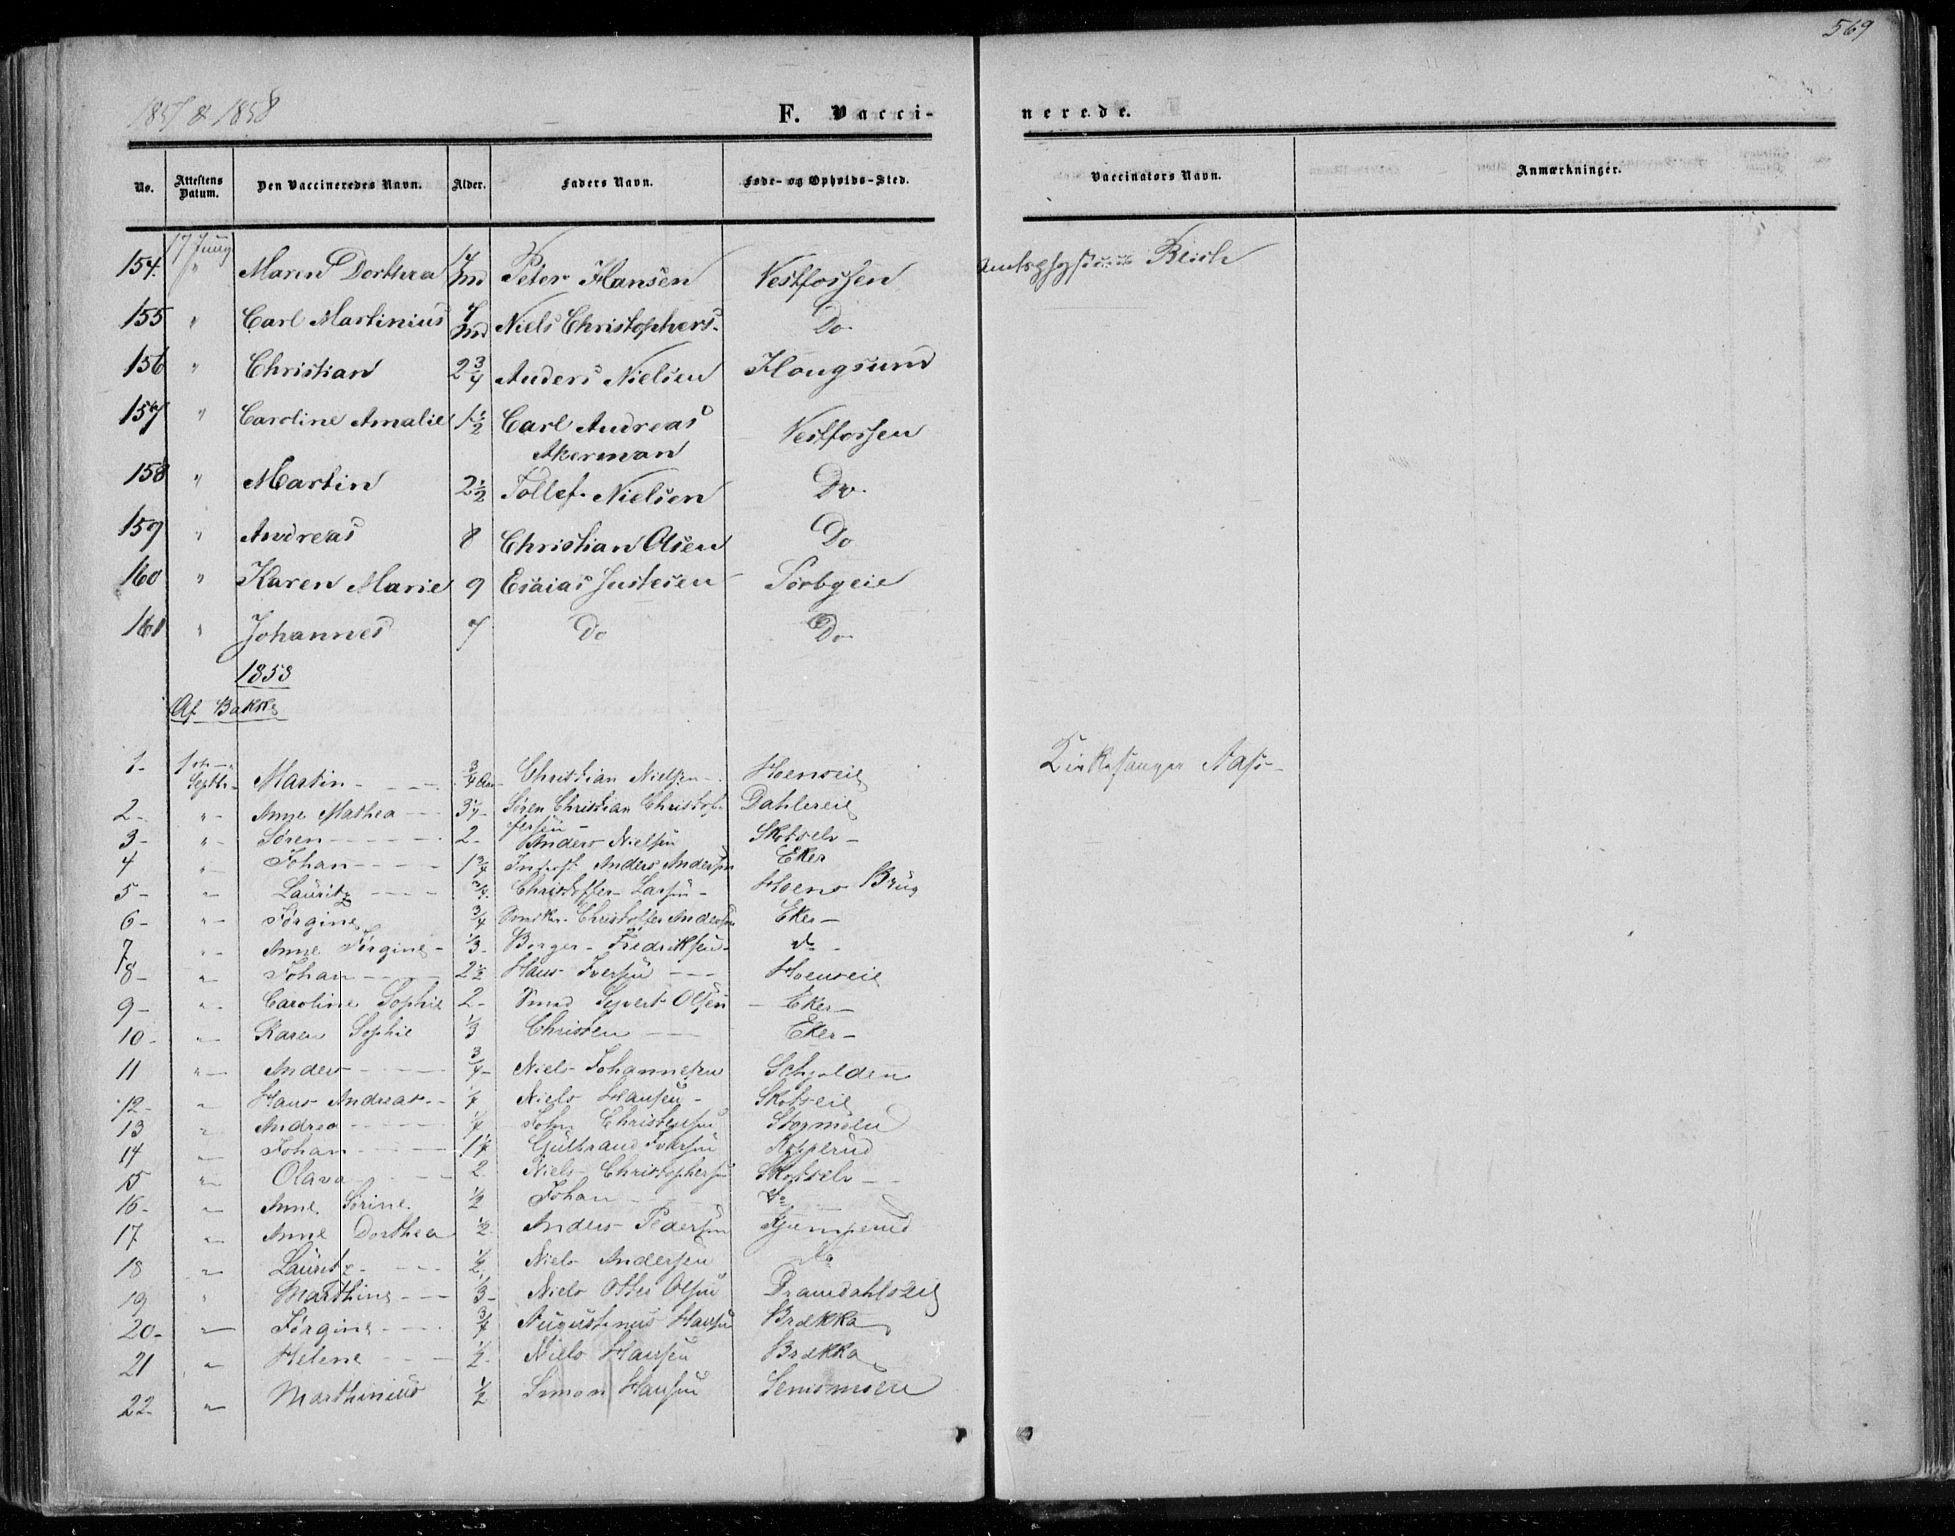 569
1857 & 1858
F. Vacci-
nerede.
No. Attestens Datum. Den Vaccineredes Navn. Alder. Faders Navn. Føde- og Opholds-Sted. Vaccinators Navn. Anmærkninger.
17 Juny
154. " Maren Dorthea Md Peter Hansen Vestfossen
155 " Carl Martinius 7 Md Niels Christophers. Do
156 " Christian 2 3/4 Anders Nielsen Hougsund
157 " Caroline Amalie 1 1/2 Carl Andreas Akerman Vestfossen
158 " Martin 2 1/2 Tollef Nielsen Do
159 " Andreas 8 Christian Olsen Do
160 " Karen Marie 9 Esaias Justesen Sorbyeie
161 " Johannes 7 Do Do
1858
Af Bakke
1- 1ste Septbr- Martin 3/4 Aar Christian Nielsen Hoenseie Kirkesanger Aass
2- " Anne Mathea 3 1/4 Søren Christian Christoffersen Dahlereie
3- " Søren 2- Anders Nielsen Skotselv
4 " Johan 1 3/4 Anders Andersen Eker
5- " Lauritz 3/4 Christoffer Larsen Hoens Brug
6- " Jørgine 3/4 Christoffer Andersen Eker
7- " Anne Jørgine 1/3 Borger Fredriksen do
8- " Johan 2 1/2 Hans Iversen Hoenseie
9- " Caroline Sophie 2- Smed Syvert Olsen Eker
10- " Karen Sophie 1/3 Christen Eker
11 " Anders 3/4 Niels Johannesen
12- " Hans Andreas 1/4 Niels Hansen
13 " Andrea 1/4 John Christensen
14 " Johan 1 1/4 Gulbrand Iversen
15 " Olava 2 Niels Christophersen Skotselv
16- " Anne Sørine 1/2 Johan do
17 " Anne Dorthea 1/2 Anders Pedersen
18 " Lauritz 1/2 Niels Andersen do
19 " Marthine 1/3 Niels Otter Olsen
20- " Jørgine 3/4 Augustinus Hansen Brekka
21 " Helene 1/2 Niels Hansen Brekka
22- " Marthinius 1/2 Simon Hansen